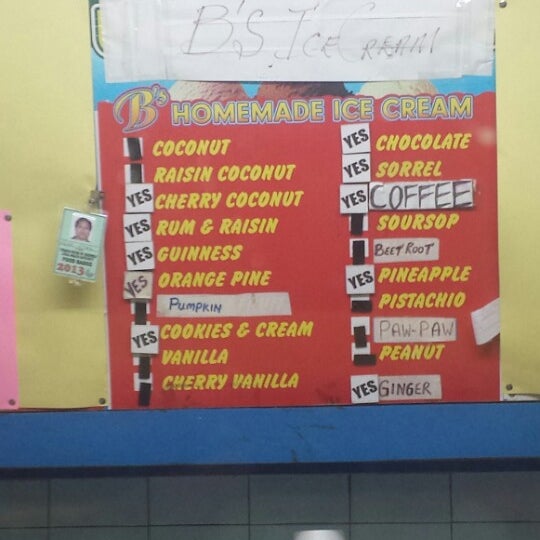 B'S ICE CREAM
B's HOMEMADE ICE CREAM
COCONUT
RAISIN COCONUT
YES CHERRY COCONUT
YES RUM & RAISIN
YES GUINNESS
YES ORANGE PINE
PUMPKIN
YES COOKIES & CREAM
VANILLA
CHERRY VANILLA
YES CHOCOLATE
YES SORREL
YES COFFEE
SOURSOP
BEET ROOT
YES PINEAPPLE
PISTACHIO
PAW-PAW
PEANUT
YES GINGER
FOOD BADGE
2013